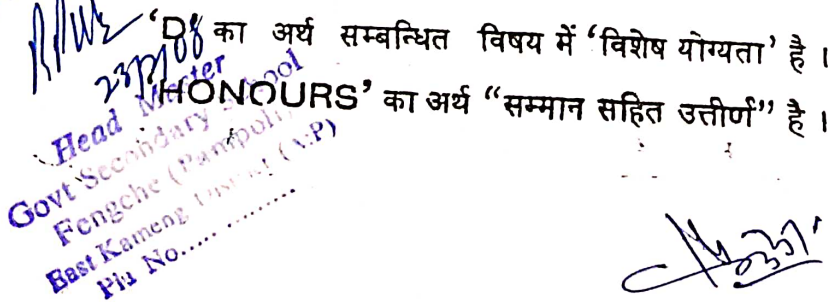 'D' का अर्थ सम्बन्धित विषय में 'विशेष योग्यता' है ।
'HONOURS' का अर्थ "सम्मान सहित उत्तीर्ण" है ।
Head Master
Govt Secondary School
Fengche (Pampoli)
East Kameng (A.P)
Pin No.....